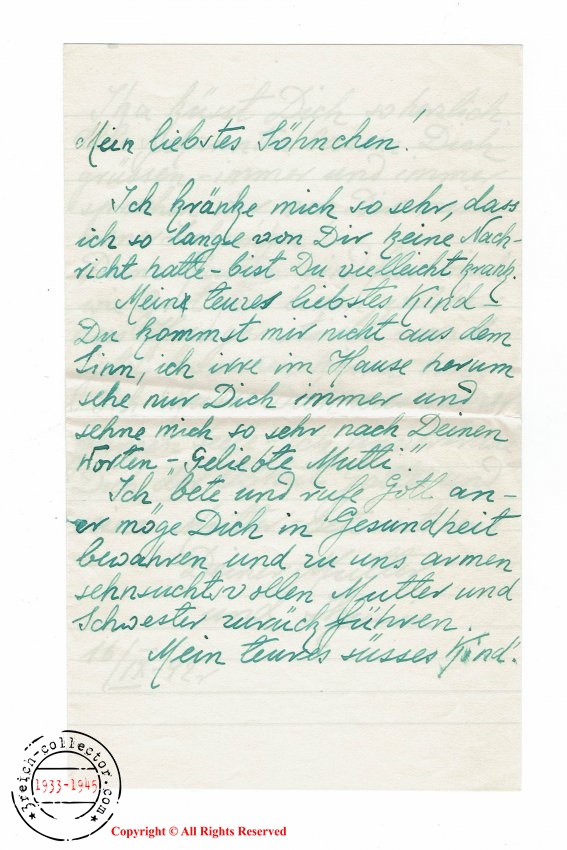 Mein liebstes Söhnchen!
Ich kränke mich so sehr, dass
ich so lange von Dir keine Nach-
richt hatte - bist Du vielleicht krank.
Mein teures liebstes Kind -
Du kommst mir nicht aus dem
Sinn, ich irre im Hause herum
sehe nur Dich immer und
sehne mich so sehr nach Deinen
Worten - "Geliebte Mutti."
Ich bete und rufe Gott an -
er möge Dich in Gesundheit
bewahren und zu uns armen
sehnsuchtsvollen Mutter und
Schwester zurückführen.
Mein teures süsses Kind!
3reich-collector.com
1933-1945
Copyright © All Rights Reserved